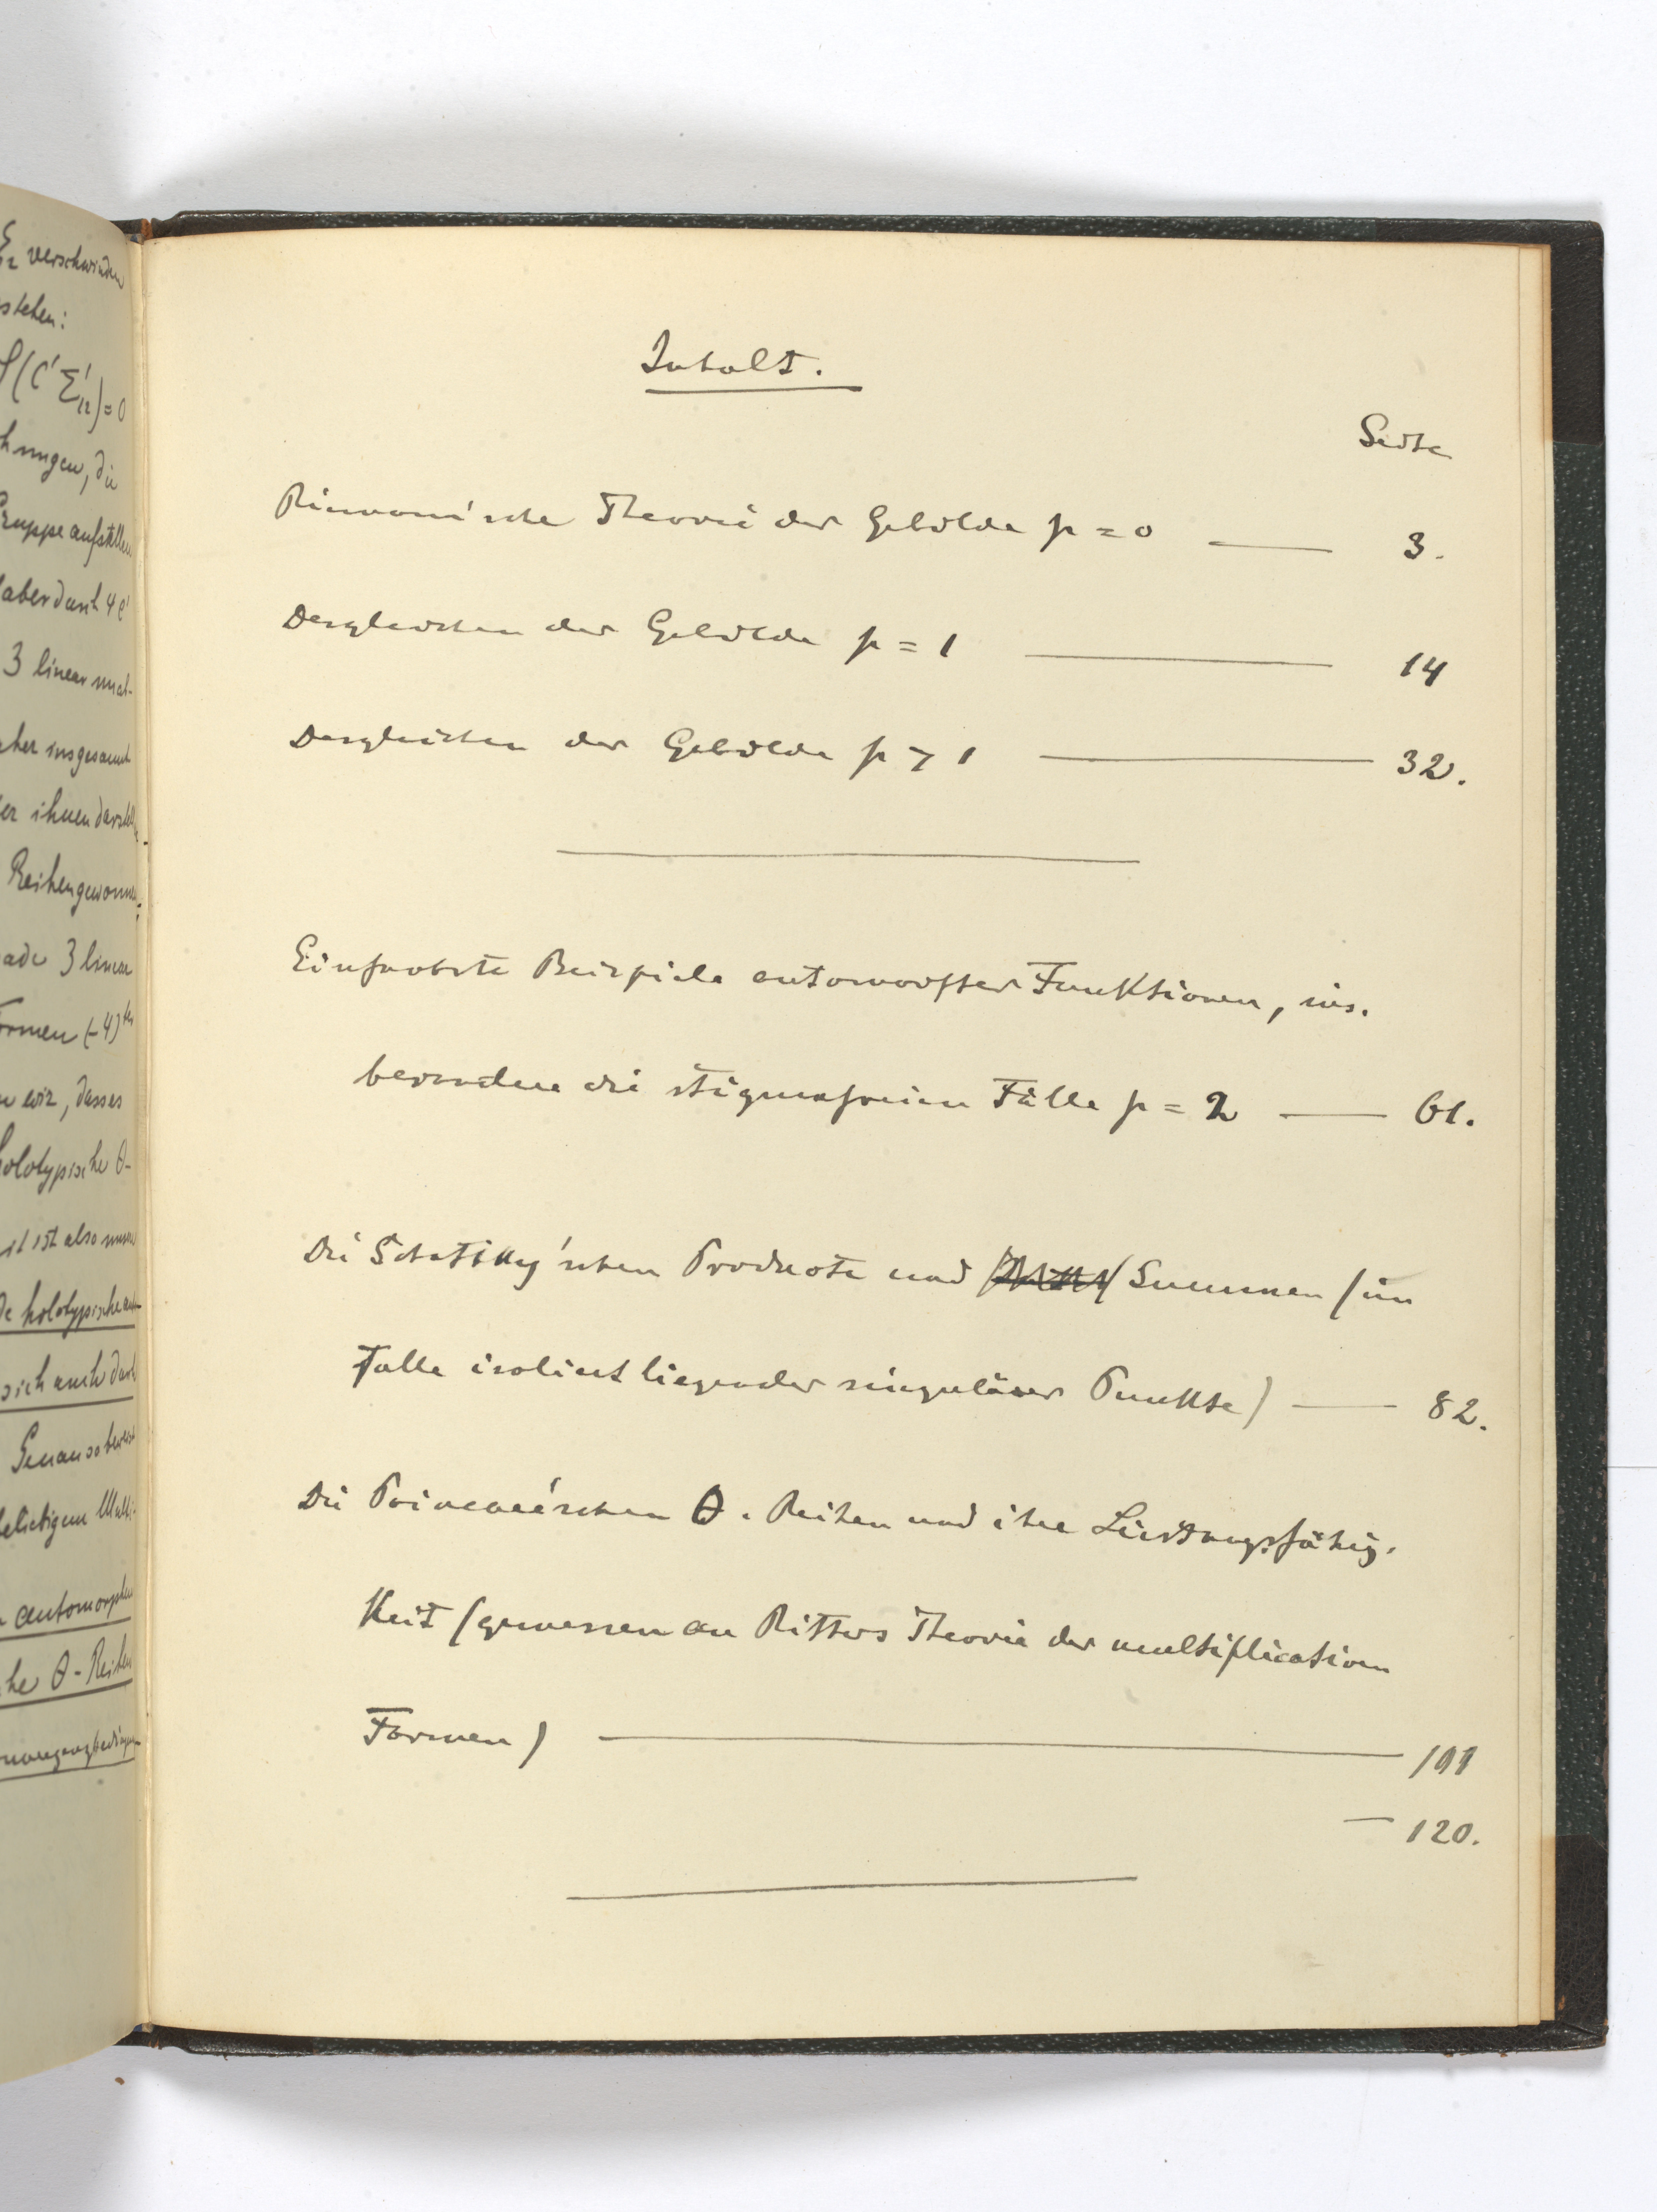 ς₁₂ verschwinden
stehen:
(C' Σ'₁₂) = 0
hnungen, die
Gruppe aufstellen
aber durch 4 C'
3 linear unab-
her insgesammt
er ihnen darstell
Reihen gewonnen
ade 3 linear
Formen (-4)ter
wir, dass es
holotypische θ-
ist also
holotypische
sich auch durch
Genau so beweist
beliebigem Multi-
automorphen
he θ-Reihen
Inhalt.
Seite
Riemann'sche Theorie der Gebilde p = 0 — 3.
Desgleichen der Gebilde p = 1 — 14
Desgleichen der Gebilde p > 1 — 32.
Einfachste Beispiele automorpher Funktionen, ins-
besondere die stigmafreien Fälle p = 2 — 61.
Die Schottky'schen Producte und Summen (im
Falle isolirt liegender singulärer Punkte) — 82.
Die Poincaré'schen θ-Reihen und ihre Leistungsfähig-
keit (gemessen an Ritters Theorie der multiplicativen
Formen) — 101
— 120.